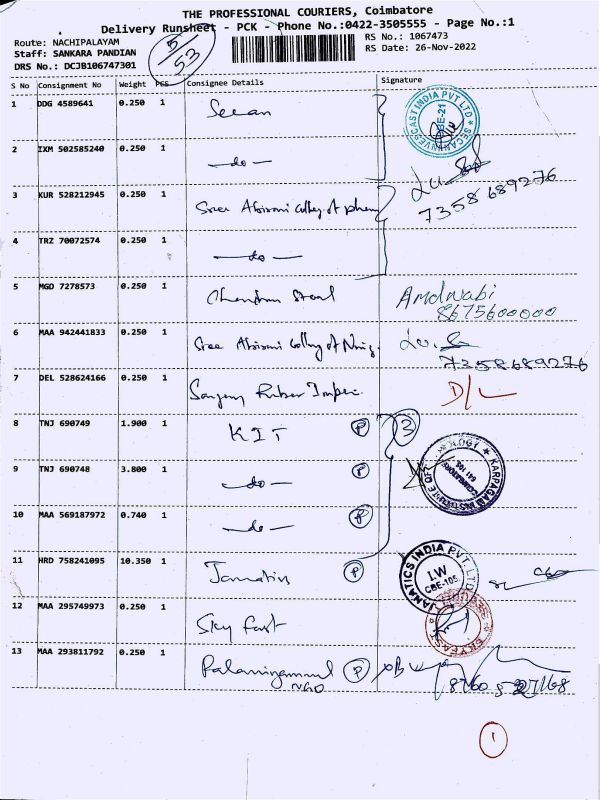 THE PROFESSIONAL COURIERS, Coimbatore
Delivery Runsheet - PCK - Phone No.:0422-3505555 - Page No.:1
Route: NACHIPALAYAM RS No.: 1067473
Staff: SANKARA PANDIAN RS Date: 26-Nov-2022
DRS No.: DCJB106747301
5/53
S No Consignment No Weight PCS Consignee Details Signature
1 DDG 4589641 0.250 1 Secan
2 IXM 502585240 0.250 1 -do-
3 KUR 528212945 0.250 1 Sree Abirami College of Pharm 7358689276
4 TRZ 70072574 0.250 1 -do-
5 MGD 7278573 0.250 1 Chendur Steel 8675600000
6 MAA 942441833 0.250 1 Sree Abirami College of Nursing 7358689276
7 DEL 528624166 0.250 1 Rubber D/L
8 TNJ 690749 1.900 1 KIT P 3
9 TNJ 690748 3.800 1 -do- P
10 MAA 569187972 0.740 1 -do- P
11 HRD 758241095 10.350 1 Janatics P
JANATICS INDIA PVT. LTD
I.W
CBE-105
12 MAA 295749973 0.250 1 Sky Fast
13 MAA 293811792 0.250 1 P
1